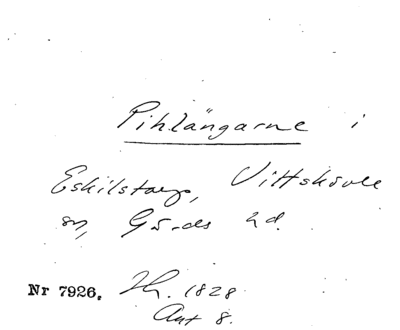 Pihlängarne i
Eskilstorp, Vittskövle
sn, Gärds hd.
Nr 7926. 1828
Akt 8.